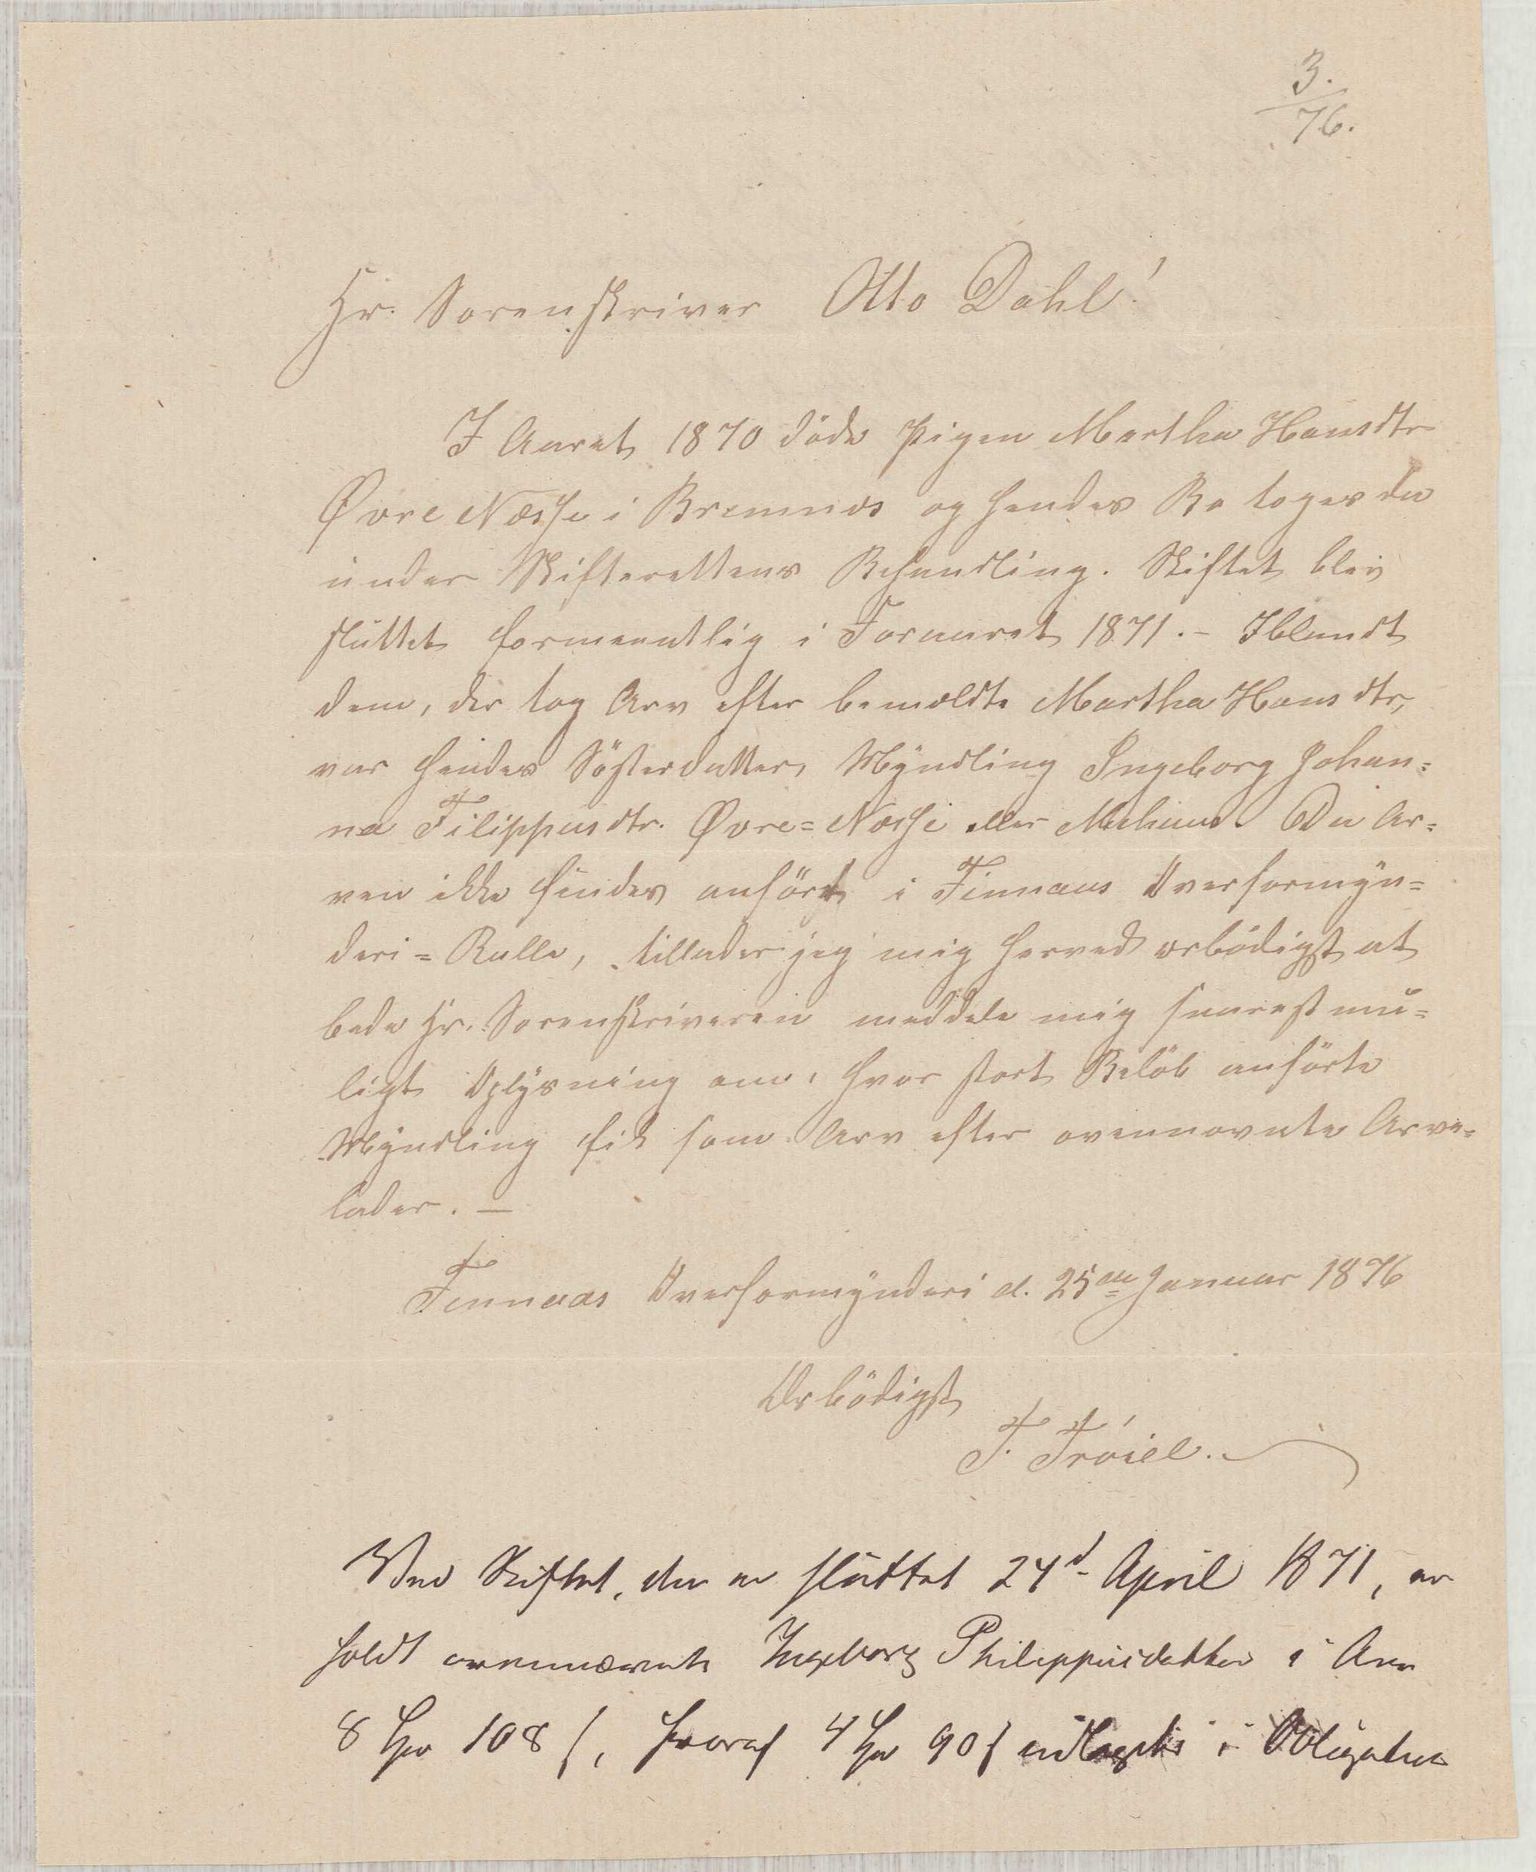 3.
76.
Hr. Sorenskriver Otto Dahl!
I Aaret 1870 döde Pigen Martha Hansdtr
Øvre Næsse i Bremnes og hendes Bo toges da
under Skifterettens Behandling. Skiftet blev
sluttet formeentlig i Foraaret 1871. – Iblandt
dem, der tog Arv efter bemeldte Martha Hansdtr,
var hendes Søsterdatter, Myndling Ingeborg Johan=
na Filippusdtr. Øvre=Næsse eller Mehuus. Da Ar=
ven ikke findes anført i Finnaas Overformyn=
deri=Rulle, tillader jeg mig herved ærbödigst at
bede Hr. Sorenskriveren meddele mig snarest mu=
ligt Oplysning om, hvor stort Belöb anförte
Myndling fik som Arv efter ovennævnte Arve=
lader. —
Finnaas Overformynderi d. 25de Januar 1876
Ærbödigst
F. Tröiel.
Ved Skiftet, der er sluttet 24d April 1871, er
holdt ovennævnte Ingeborg Philippusdatter i Arv
8 Spd 108 ß, hvoraf 4 Spd 90 ß udlagte i Obligation